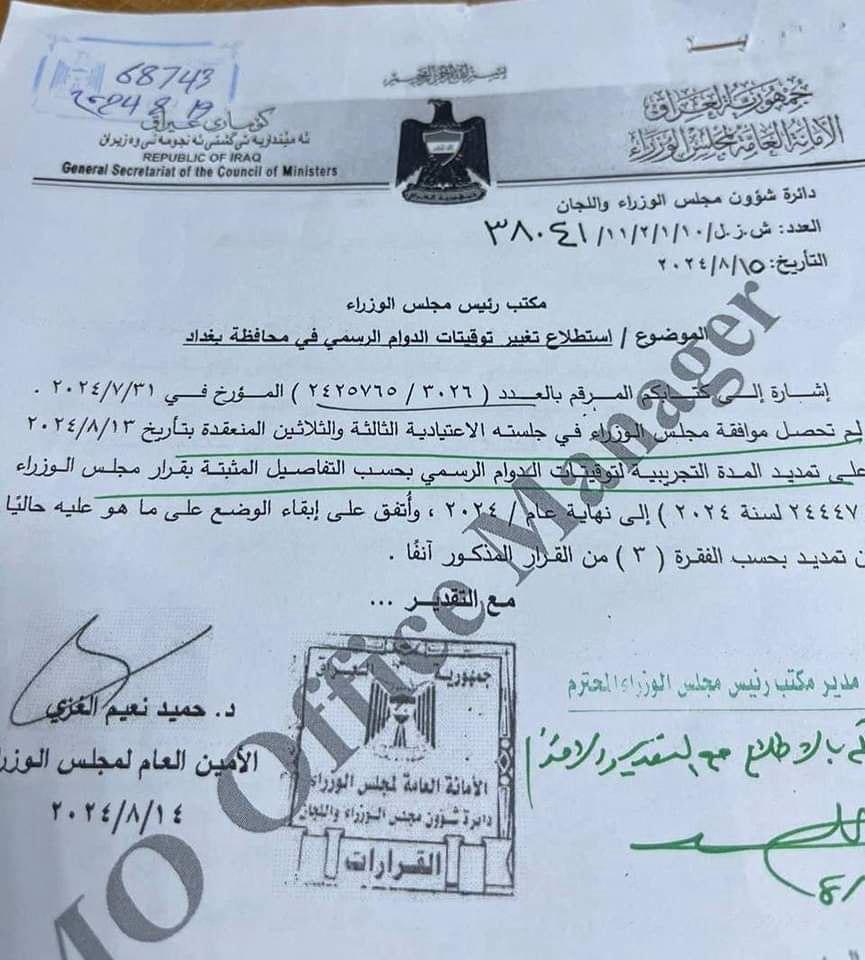 68743
2024 8 19
بسم الله الرحمن الرحيم
جمهورية العراق
الأمانة العامة لمجلس الوزراء
كۆماری عێراق
REPUBLIC OF IRAQ
General Secretariat of the Council of Ministers
دائرة شؤون مجلس الوزراء واللجان
العدد: ش.ز.ل/١٠/١/٢/١١/٣٨٠٤١
التاريخ: ٢٠٢٤/٨/١٥
مكتب رئيس مجلس الوزراء
الموضوع / استطلاع تغيير توقيتات الدوام الرسمي في محافظة بغداد
إشارة إلى كتابكم المرقم بالعدد ( ٣٠٢٦ / ٢٤٢٥٧٦٥ ) المؤرخ في ٢٠٢٤/٧/٣١ .
لم تحصل موافقة مجلس الوزراء في جلسته الاعتيادية الثالثة والثلاثين المنعقدة بتأريخ ٢٠٢٤/٨/١٣
على تمديد المدة التجريبية لتوقيتات الدوام الرسمي بحسب التفاصيل المثبتة بقرار مجلس الوزراء
٢٤٤٤٧ لسنة ٢٠٢٤ ) إلى نهاية عام / ٢٠٢٤ ، وأُتفق على إبقاء الوضع على ما هو عليه حاليًا
تمديد بحسب الفقرة ( ٣ ) من القرار المذكور آنفًا .
مع التقدير ...
د. حميد نعيم الغزي
الأمين العام لمجلس الوزراء
٢٠٢٤/٨/١٤
جمهورية العراق
الأمانة العامة لمجلس الوزراء
دائرة شؤون مجلس الوزراء واللجان
القرارات
مدير مكتب رئيس مجلس الوزراء المحترم
بالاطلاع مع التقدير
MO Office Manager